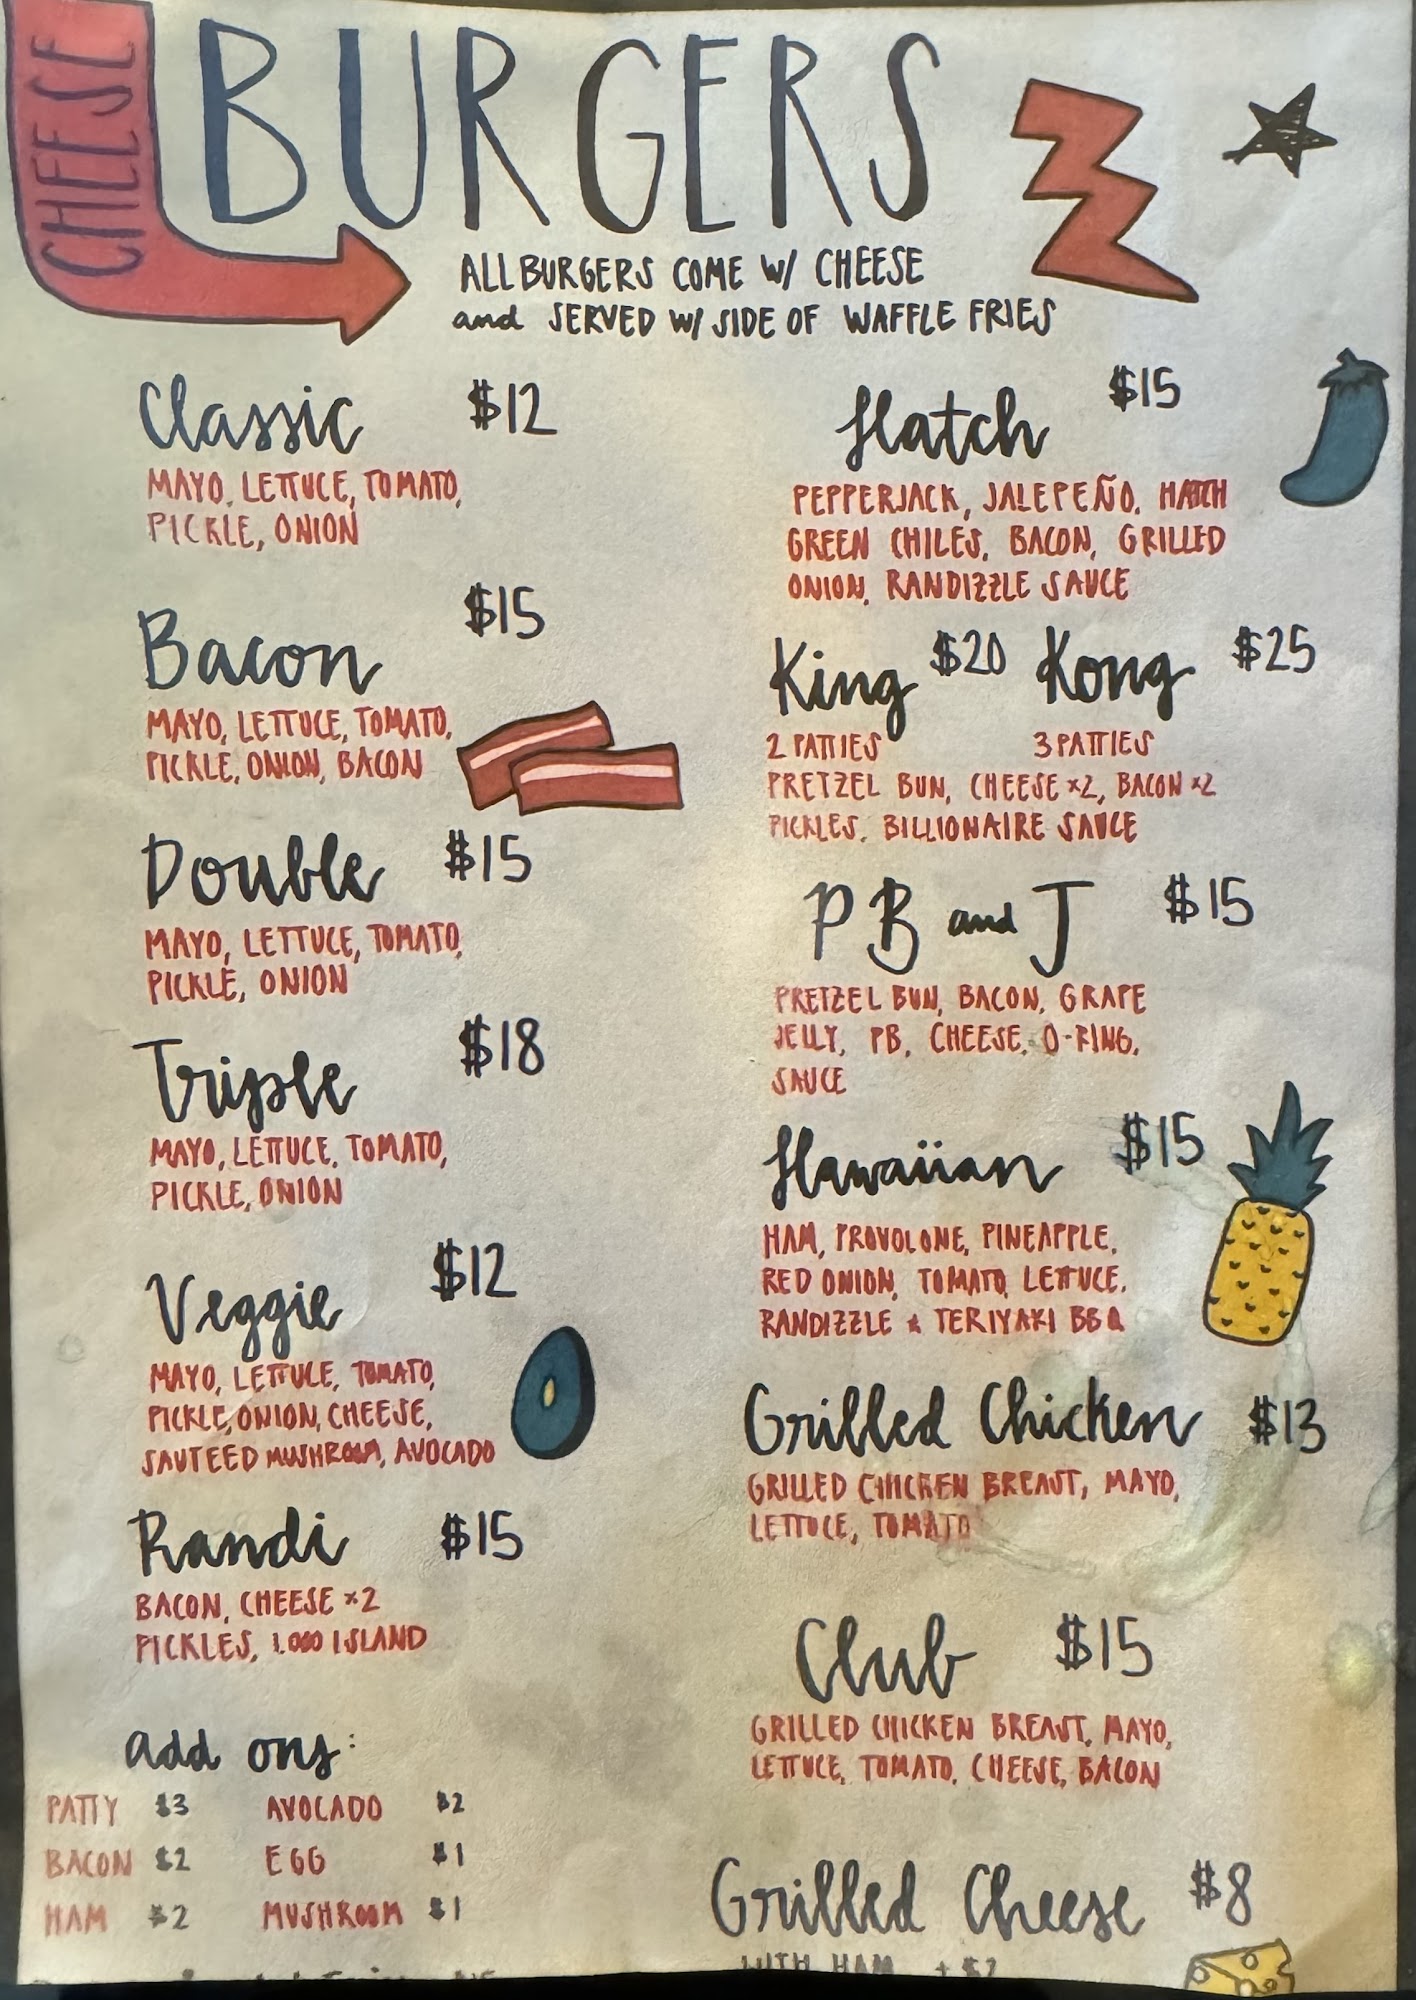 CHEESE
BURGERS
ALL BURGERS COME W/ CHEESE
and SERVED W/ SIDE OF WAFFLE FRIES
Classic $12
MAYO, LETTUCE, TOMATO,
PICKLE, ONION
Bacon $15
MAYO, LETTUCE, TOMATO,
PICKLE, ONION, BACON
Double $15
MAYO, LETTUCE, TOMATO,
PICKLE, ONION
Triple $18
MAYO, LETTUCE, TOMATO,
PICKLE, ONION
Veggie $12
MAYO, LETTUCE, TOMATO,
PICKLE, ONION, CHEESE,
SAUTEED MUSHROOM, AVOCADO
Randi $15
BACON, CHEESE x2
PICKLES, 1,000 ISLAND
add ons:
PATTY $3 AVOCADO $2
BACON $2 EGG $1
HAM $2 MUSHROOM $1
Hatch $15
PEPPERJACK, JALEPEÑO, HATCH
GREEN CHILES, BACON, GRILLED
ONION, RANDIZZLE SAUCE
King $20 Kong $25
2 PATTIES 3 PATTIES
PRETZEL BUN, CHEESE x2, BACON x2
PICKLES, BILLIONAIRE SAUCE
PB and J $15
PRETZEL BUN, BACON, GRAPE
JELLY, PB, CHEESE, O-RING,
SAUCE
Hawaiian $15
HAM, PROVOLONE, PINEAPPLE,
RED ONION, TOMATO, LETTUCE,
RANDIZZLE & TERIYAKI BBQ
Grilled Chicken $13
GRILLED CHICKEN BREAST, MAYO,
LETTUCE, TOMATO
Club $15
GRILLED CHICKEN BREAST, MAYO,
LETTUCE, TOMATO, CHEESE, BACON
Grilled Cheese $8
WITH HAM + $2